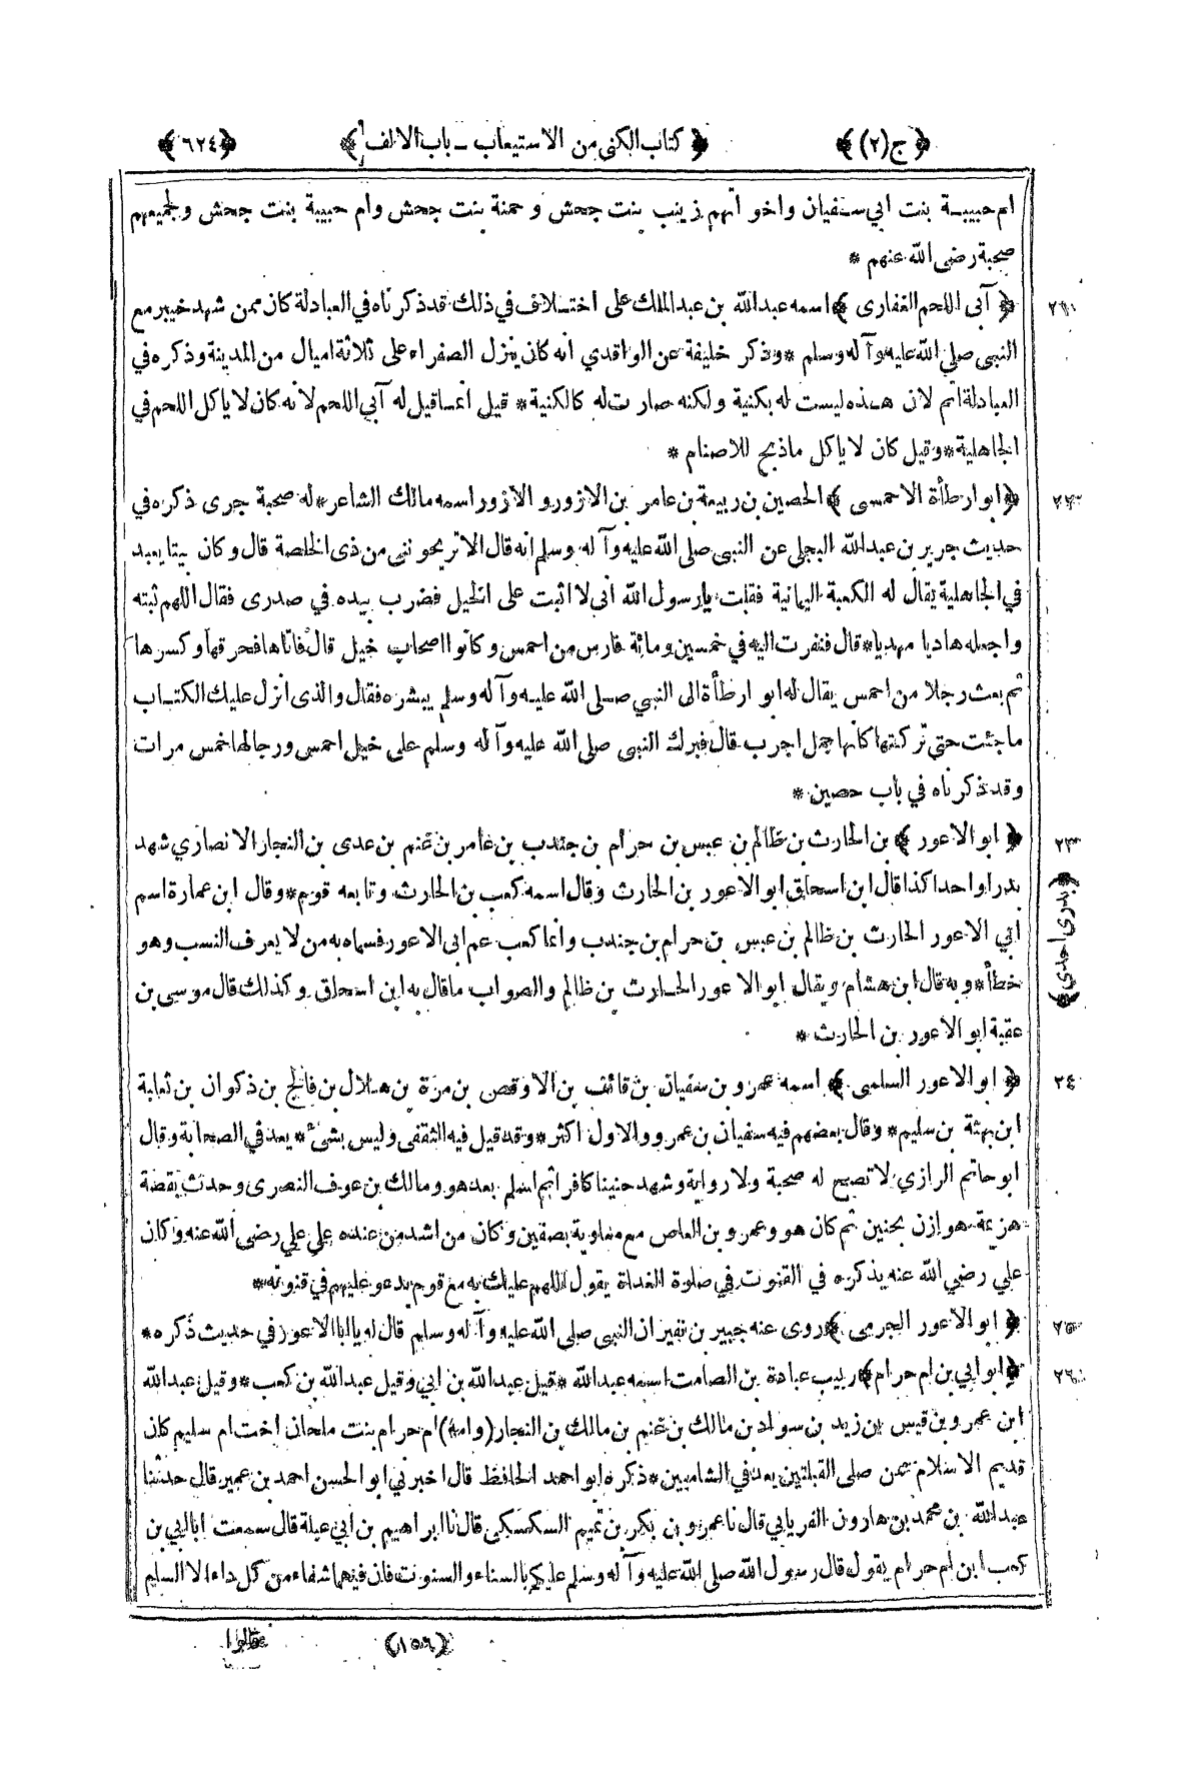 ﴿ ج (٢) ﴾ ﴿ كتاب الكنى من الاستيعاب ــ باب الالف ﴾ ﴿ ٦٢٤ ﴾
ام حبيبة بنت ابي سفيان واخواتهم زينب بنت جحش وحمنة بنت جحش وام حبيبة بنت جحش ولجميعهم
صحبة رضى الله عنهم *
﴿ آبى اللحم الغفارى ﴾ اسمه عبدالله بن عبدالملك على اختلاف في ذلك قد ذكرناه في العبادلة كان ممن شهد خيبر مع
النبى صلى الله عليه وآله وسلم * وذكر خليفة عن الواقدي انه كان ينزل الصفراء على ثلاثة اميال من المدينة وذكره في
العبادلة اتم لان هذه ليست له بكنية ولكنه صارت له كالكنية * قيل انما قيل له آبي اللحم لانه كان لا ياكل اللحم في
الجاهلية * وقيل كان لا ياكل ما ذبح للاصنام *
﴿ ابو ارطأة الاحمسى ﴾ الحصين بن ربيعة بن عامر بن الازور والازور اسمه مالك الشاعر * له صحبة جرى ذكره في
حديث جرير بن عبدالله البجلى عن النبى صلى الله عليه وآله وسلم انه قال الا تريحوننى من ذى الخلصة قال وكان بيتا يعبد
في الجاهلية يقال له الكعبة اليمانية فقلت يا رسول الله أنى لا اثبت على الخيل فضرب بيده في صدرى فقال اللهم ثبته
واجعله هاديا مهديا * قال فنفرت اليه في خمسين ومائة فارس من احمس وكانوا اصحاب خيل قال فاتاها فحرقها وكسرها
ثم بعث رجلا من احمس يقال له ابو ارطأة الى النبي صلى الله عليه وآله وسلم يبشره فقال والذى انزل عليك الكتاب
ما جئت حتى تركتها كانها جمل اجرب قال فبرك النبى صلى الله عليه وآله وسلم على خيل احمس ورجالها خمس مرات
وقد ذكرناه في باب حصين *
﴿ ابو الاعور ﴾ بن الحارث بن ظالم بن عبس بن حرام بن جندب بن عامر بن غنم بن عدى بن النجار الانصاري شهد
بدرا واحدا كذا قال ابن اسحاق ابو الاعور بن الحارث وقال اسمه كعب بن الحارث وتابعه قوم * وقال ابن عمارة اسم
ابي الاعور الحارث بن ظالم بن عبس بن حرام بن جندب وانما كعب عم ابى الاعور فسماه به من لا يعرف النسب وهو
خطأ * وبه قال ابن هشام ويقال ابو الاعور الحارث بن ظالم والصواب ما قال به ابن اسحاق وكذلك قال موسى بن
عقبة ابو الاعور بن الحارث *
﴿ ابو الاعور السلمى ﴾ اسمه عمرو بن سفيان بن قائف بن الاوقص بن مرة بن هلال بن فالج بن ذكوان بن ثعلبة
ابن بهثة بن سليم * وقال بعضهم فيه سفيان بن عمرو والاول اكثر * وقد قيل فيه الثقفى وليس بشئ * يعد في الصحابة وقال
ابو حاتم الرازي لا تصح له صحبة ولا رواية وشهد حنينا كافرا ثم اسلم بعد هو ومالك بن عوف النصرى وحدث بقصة
هزيمة هوازن بحنين ثم كان هو وعمرو بن العاص مع معاوية بصفين وكان من اشد من عنده على علي رضى الله عنه وكان
علي رضي الله عنه يذكره في القنوت في صلوة الغداة يقول اللهم عليك به مع قوم يدعو عليهم في قنوته *
﴿ ابو الاعور الجرمى ﴾ روى عنه جبير بن نفير ان النبى صلى الله عليه وآله وسلم قال له يا ابا الاعور في حديث ذكره *
﴿ ابو ابي بن ام حرام ﴾ ربيب عبادة بن الصامت اسمه عبدالله * قيل عبدالله بن ابي وقيل عبدالله بن كعب * وقيل عبدالله
ابن عمرو بن قيس بن زيد بن سواد بن مالك بن غنم بن مالك بن النجار (وامه) ام حرام بنت ملحان اخت ام سليم كان
قديم الاسلام ممن صلى القبلتين يعد في الشاميين * ذكره ابو احمد الحافظ قال اخبرني ابو الحسن احمد بن عمير قال حدثنا
عبدالله بن محمد بن هارون الفريابي قال نا عمرو بن بكر بن تميم السكسكى قال نا ابراهيم بن ابي عبلة قال سمعت ابا ابي بن
كعب ابن ام حرام يقول قال رسول الله صلى الله عليه وآله وسلم عليكم بالسناء والسنوت فان فيهما شفاء من كل داء الا السام
٢٣
﴿بدرى احدى﴾
٢٤
٢٥
٢٦
(١٥٦) قالوا